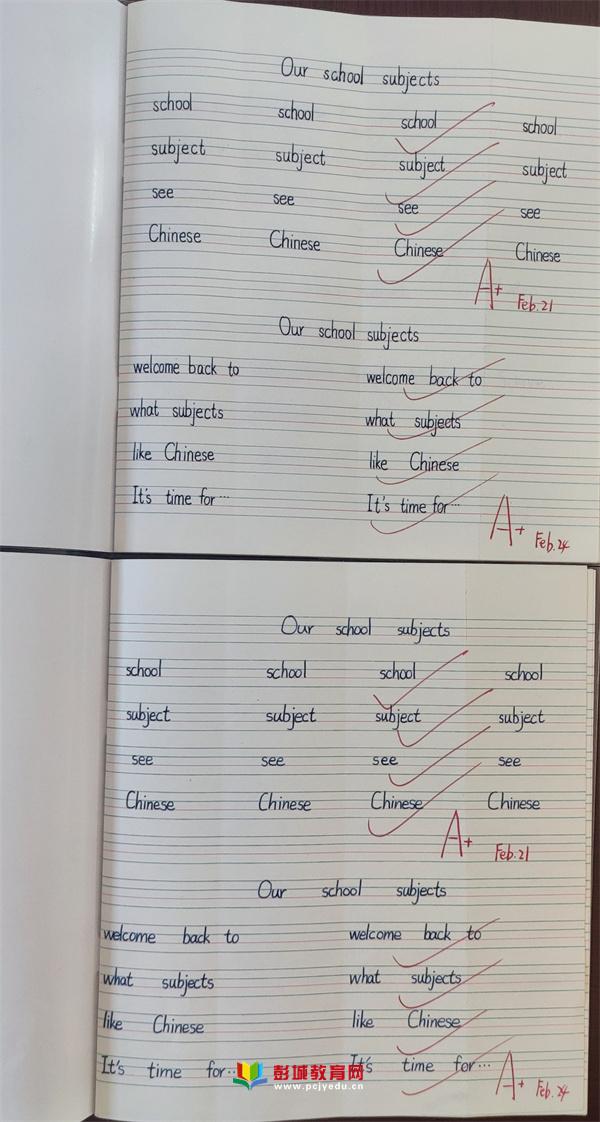 Our school subjects
school school school school
subject subject subject subject
see see see see
Chinese Chinese Chinese Chinese
A+ Feb.21
Our school subjects
welcome back to welcome back to
what subjects what subjects
like Chinese like Chinese
It's time for… It's time for…
A+ Feb.24
Our school subjects
school school school school
subject subject subject subject
see see see see
Chinese Chinese Chinese Chinese
A+ Feb.21
Our school subjects
welcome back to welcome back to
what subjects what subjects
like Chinese like Chinese
It's time for… It's time for…
A+ Feb.24
彭城教育网
www.pcjyedu.cn